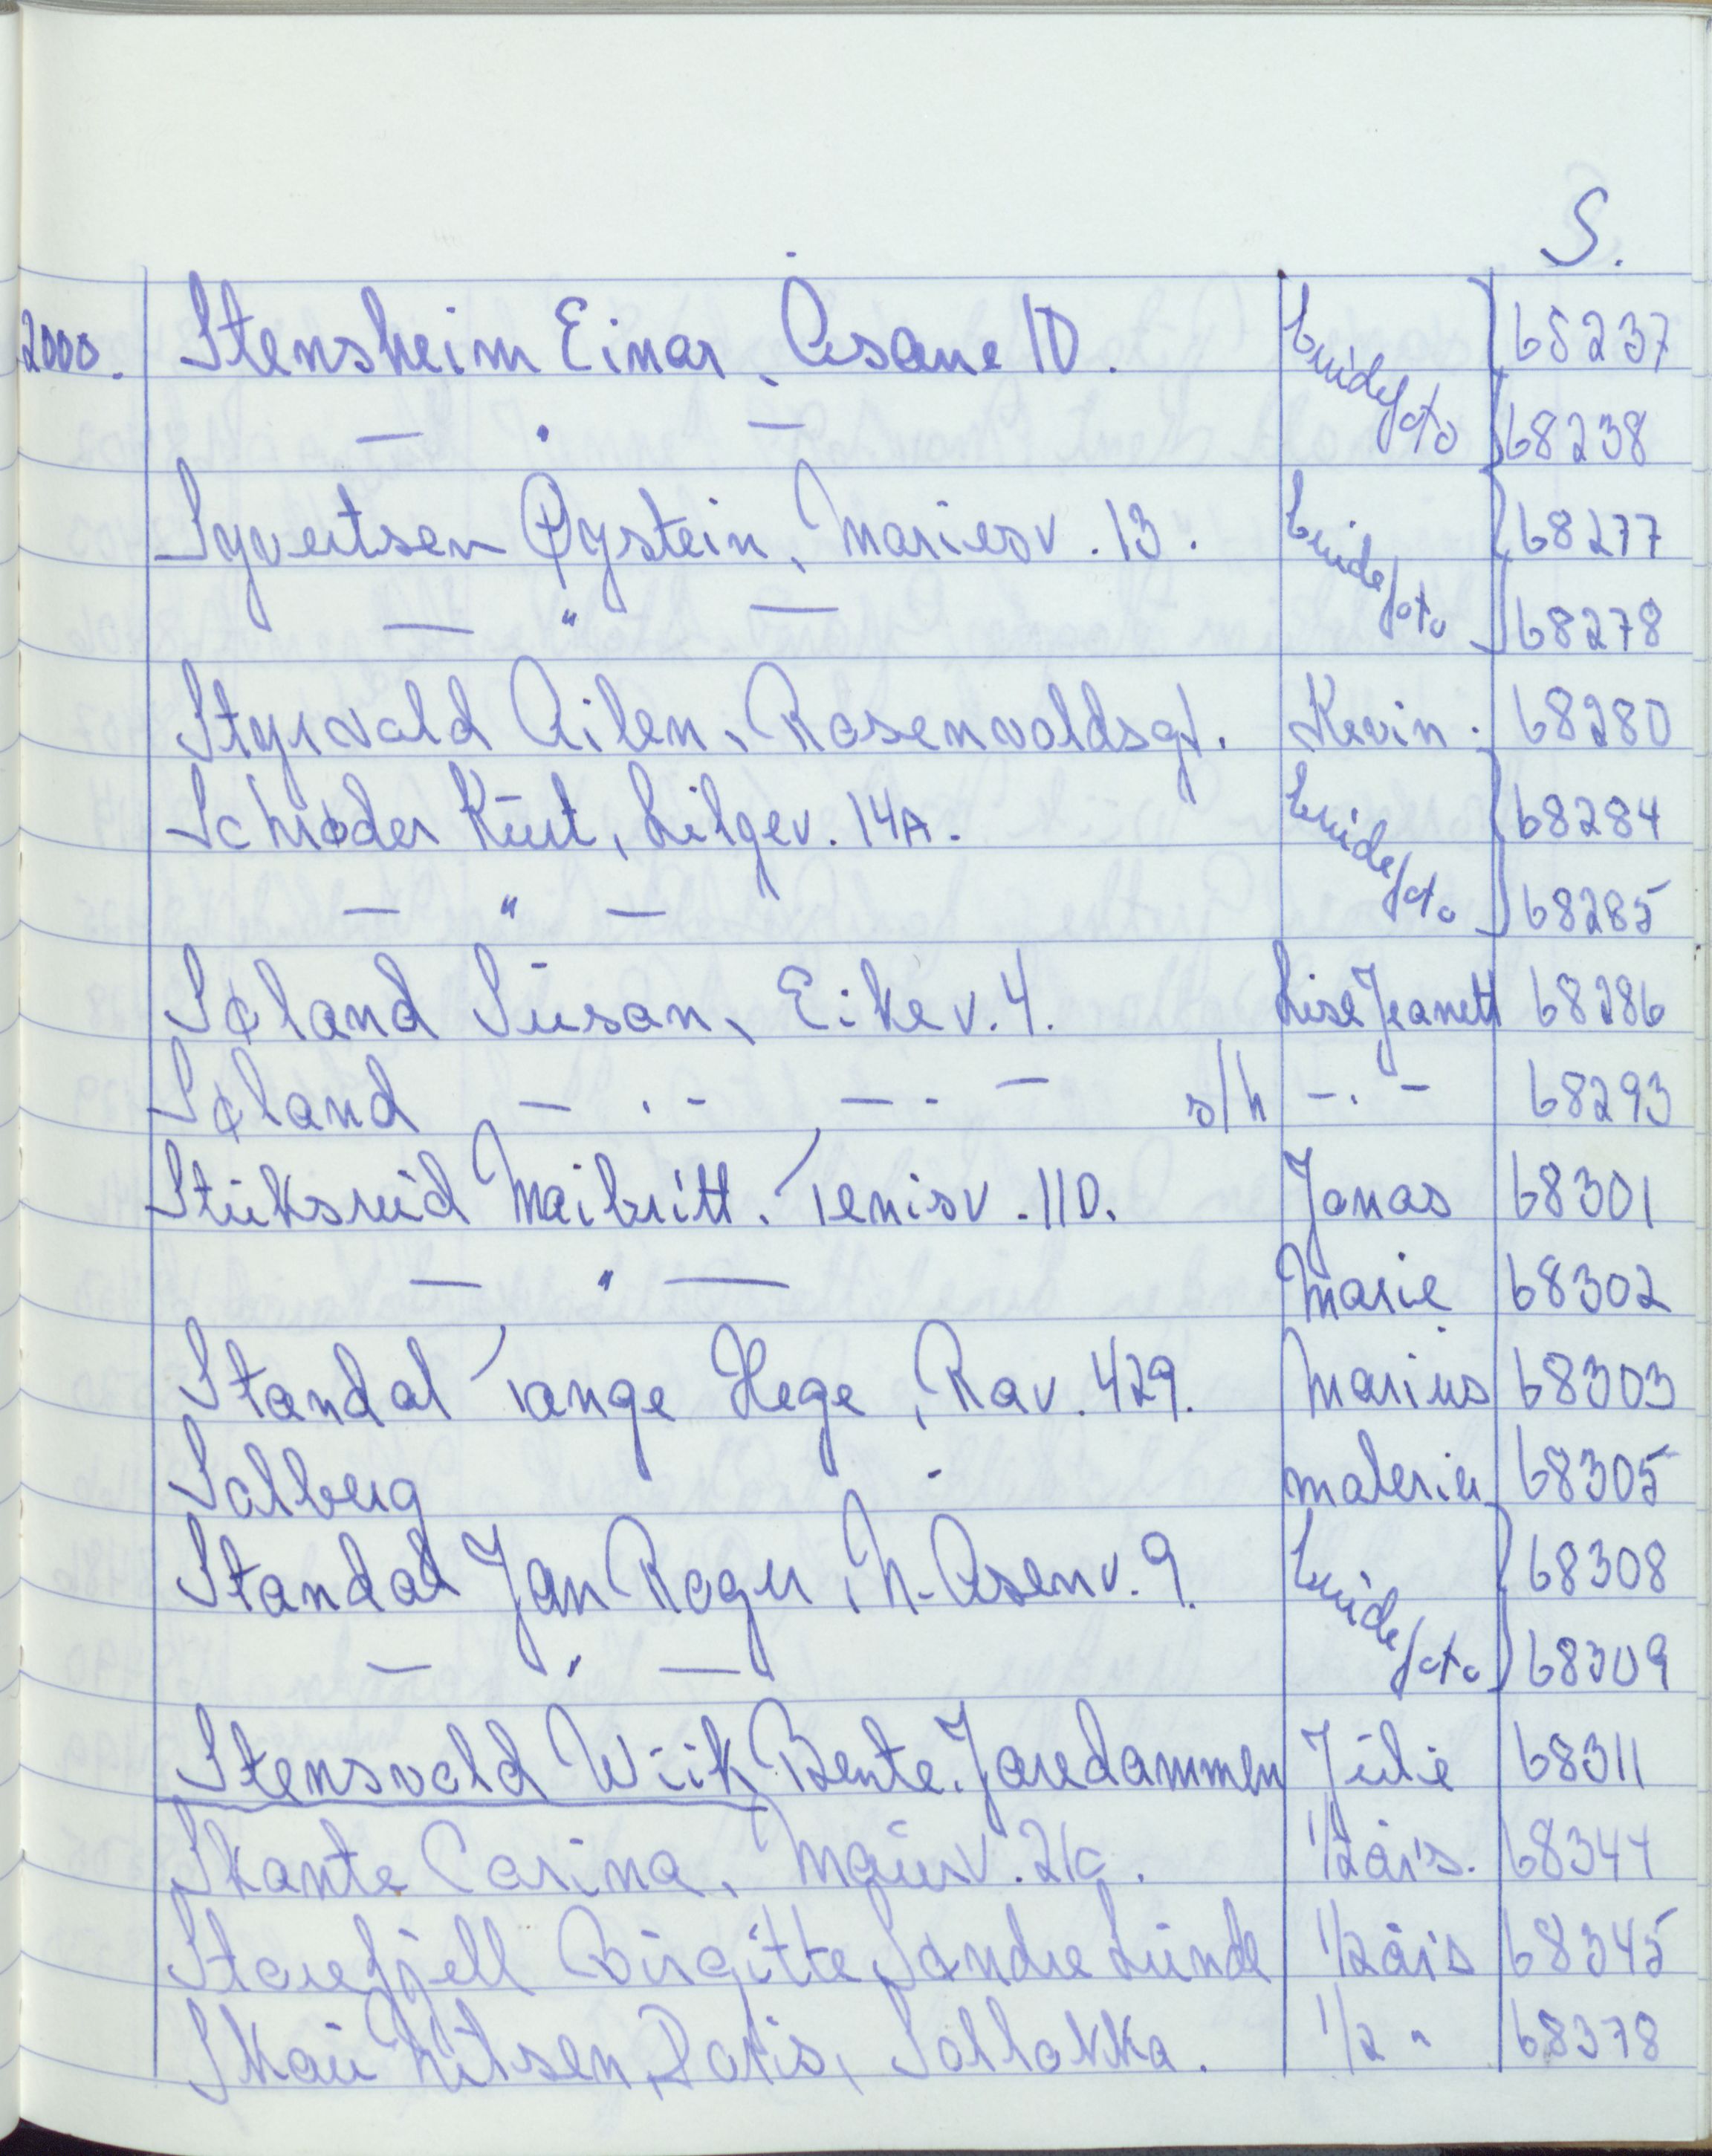 S.
2000. Stensheim Einar, Åsane 1D. brudefoto 68237
— " — 68238
Syvertsen Øystein, Mariesv. 13. brudefoto 68277
— " — 68278
Styrvold Ailen, Rosenvoldsgt. Kevin. 68280
Schrøder Kurt, Liljev. 14A. brudefoto 68284
— " — 68285
Søland Susan, Eikev. 4. Lise Jeanett 68286
Søland — . - — . - — s/h - . - 68293
Stuksrud Maibritt, Tenisv. 11D. Jonas 68301
— " — Marie 68302
Standal Tange Hege, Rav. 429. Marius 68303
Solberg malerier 68305
Standal Jan Roger, N. Åsenv. 9. brudefoto 68308
— " — 68309
Stensvold Wiik Bente, Joredammen Julie 68311
Skante Carina, Maurv. 2c. 1/2 års. 68344
Storefjell Birgitte, Søndre Lunde 1/2 års 68345
Skau Nilsen, Doris, Sollokka. 1/2 " 68378